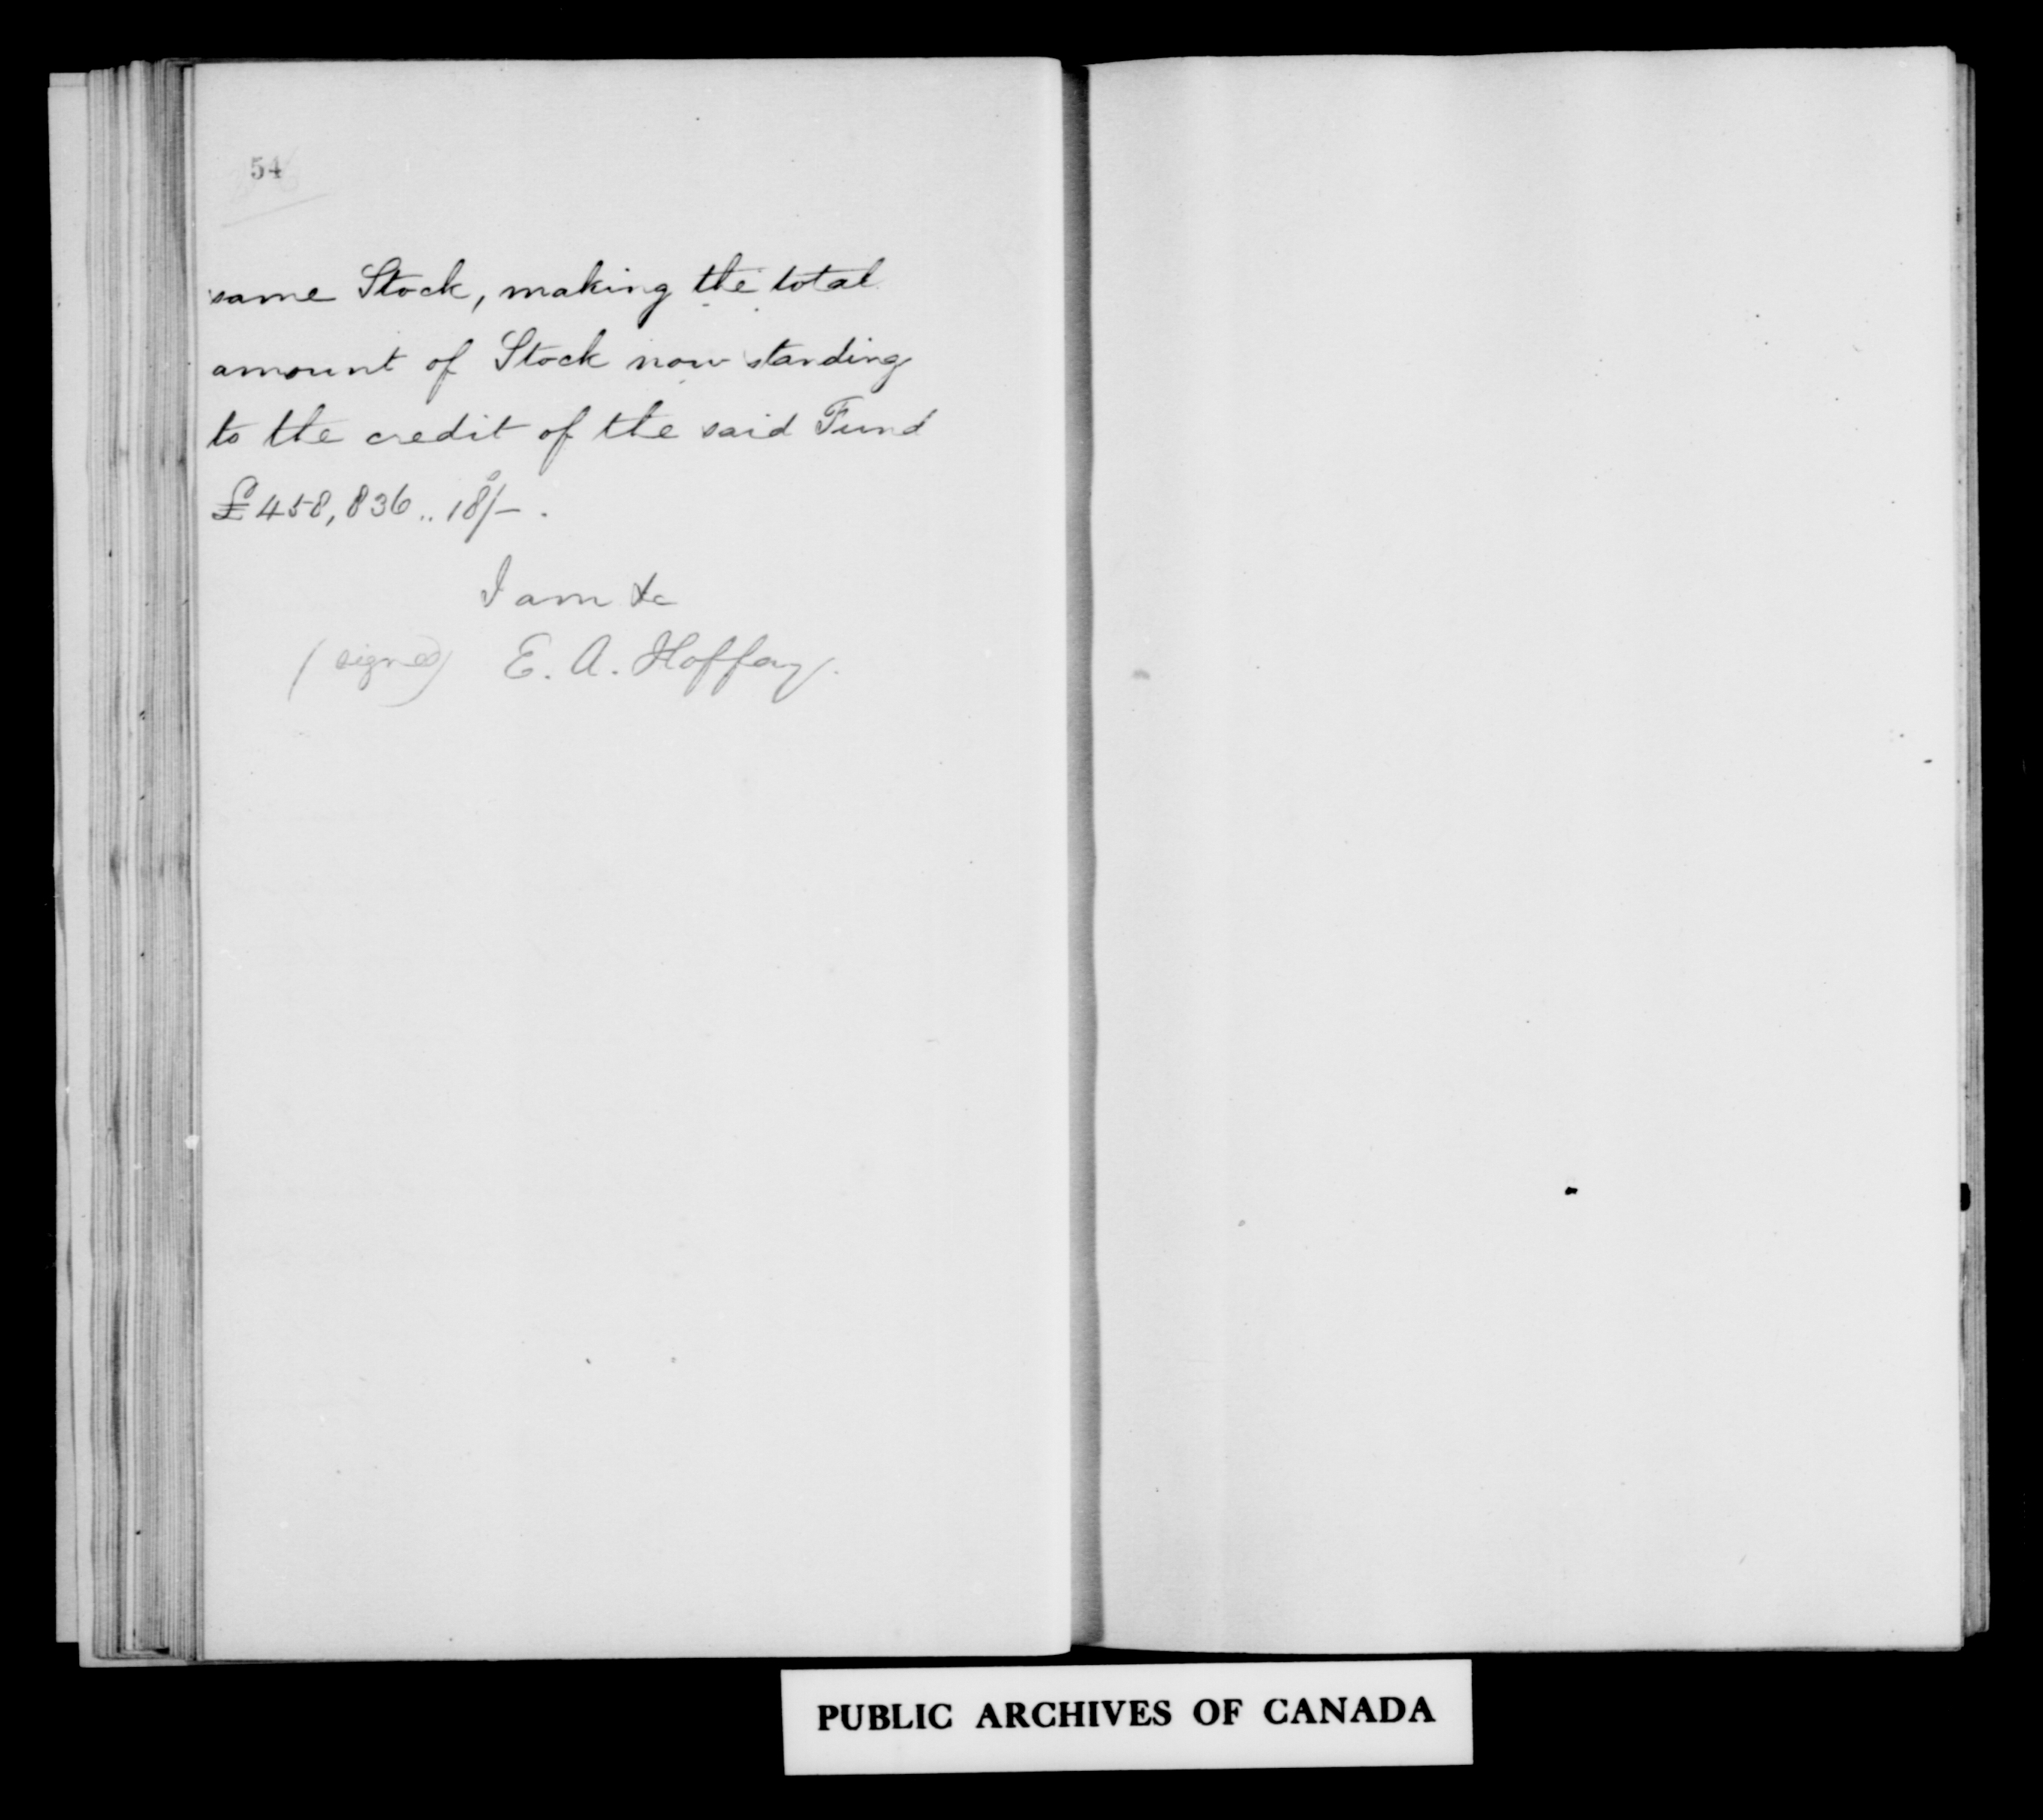 54
same Stock, making the total
amount of Stock now standing
to the credit of the said Fund
£458,836..18/-.
I am &c
(signed) E. A. Hoffay.
PUBLIC ARCHIVES OF CANADA